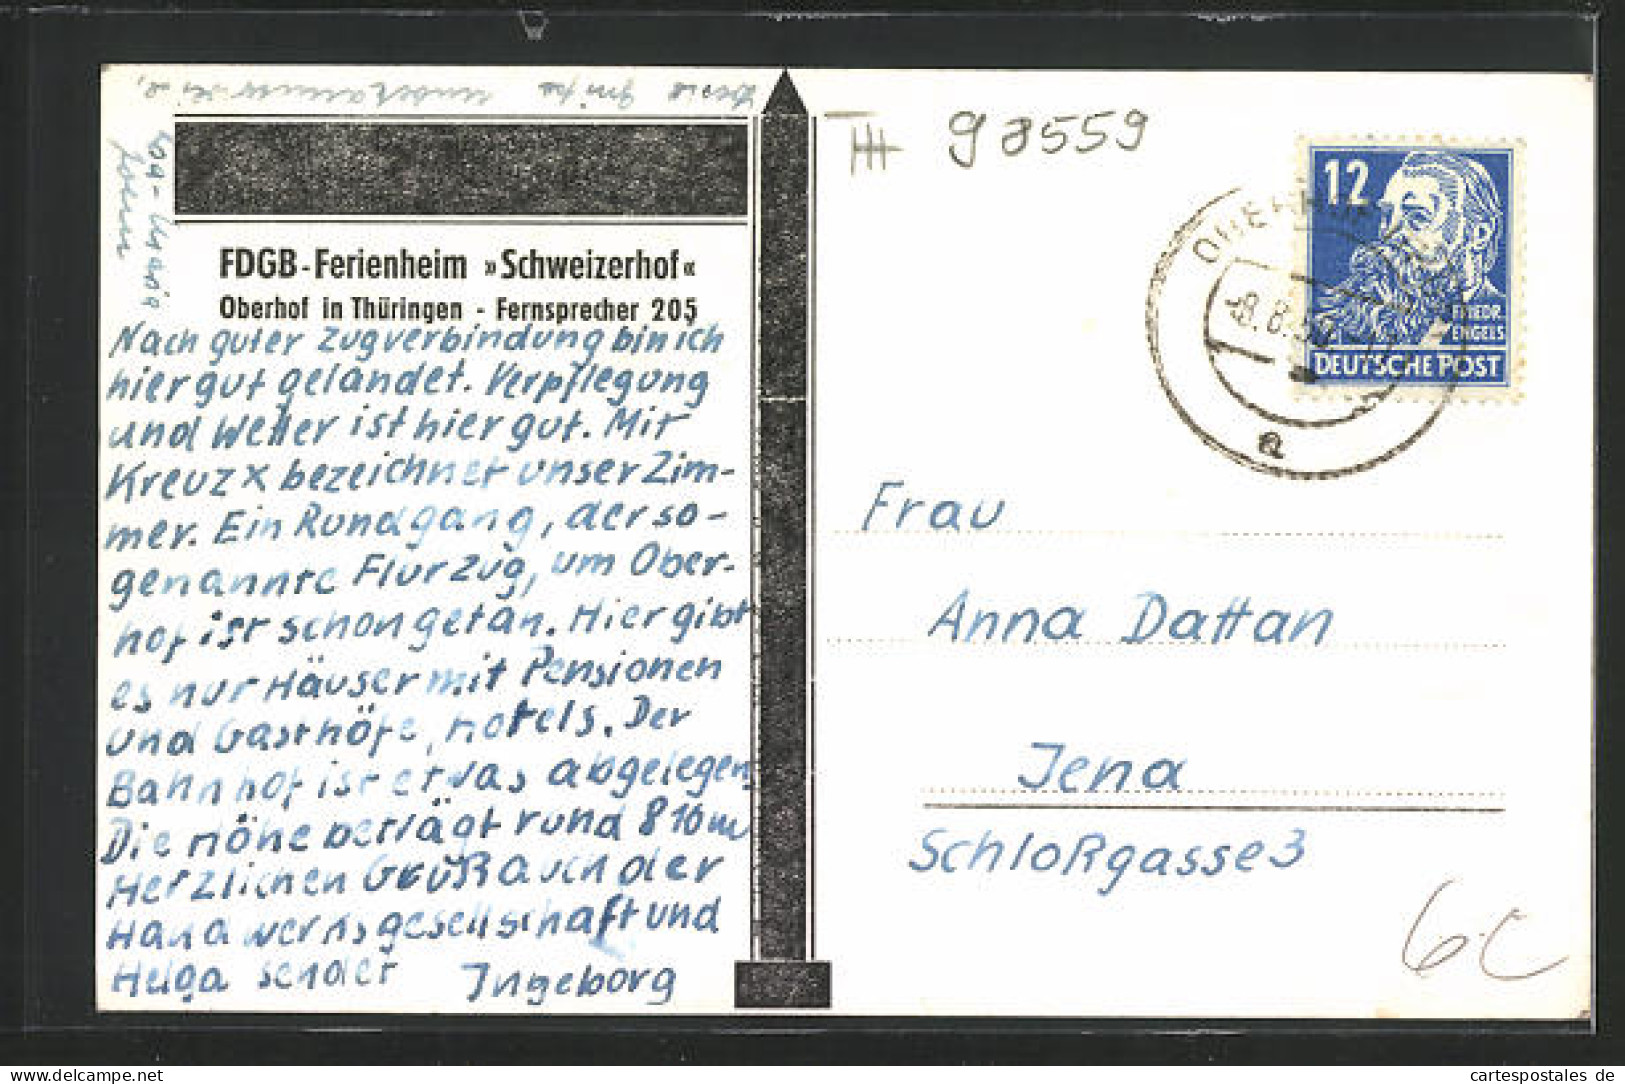 FDGB-Ferienheim »Schweizerhof«
Oberhof in Thüringen - Fernsprecher 205
Nach guter Zugverbindung bin ich
hier gut gelandet. Verpflegung
und Wetter ist hier gut. Mit
Kreuz x bezeichnet unser Zim-
mer. Ein Rundgang, der so-
genannte Flurzug, um Ober-
hof ist schon getan. Hier gibt
es nur Häuser mit Pensionen
und Gasthöfe, Hotels. Der
Bahnhof ist etwas abgelegen.
Die Höhe beträgt rund 810m
Herzlichen Gruß auch der
Handwerksgesellschaft und
Helga sendet Ingeborg
98559
12
FRIEDR.
ENGELS
DEUTSCHE POST
-8.8.50
a
Frau
Anna Dattan
Jena
Schloßgasse 3
6C
cartespostales de